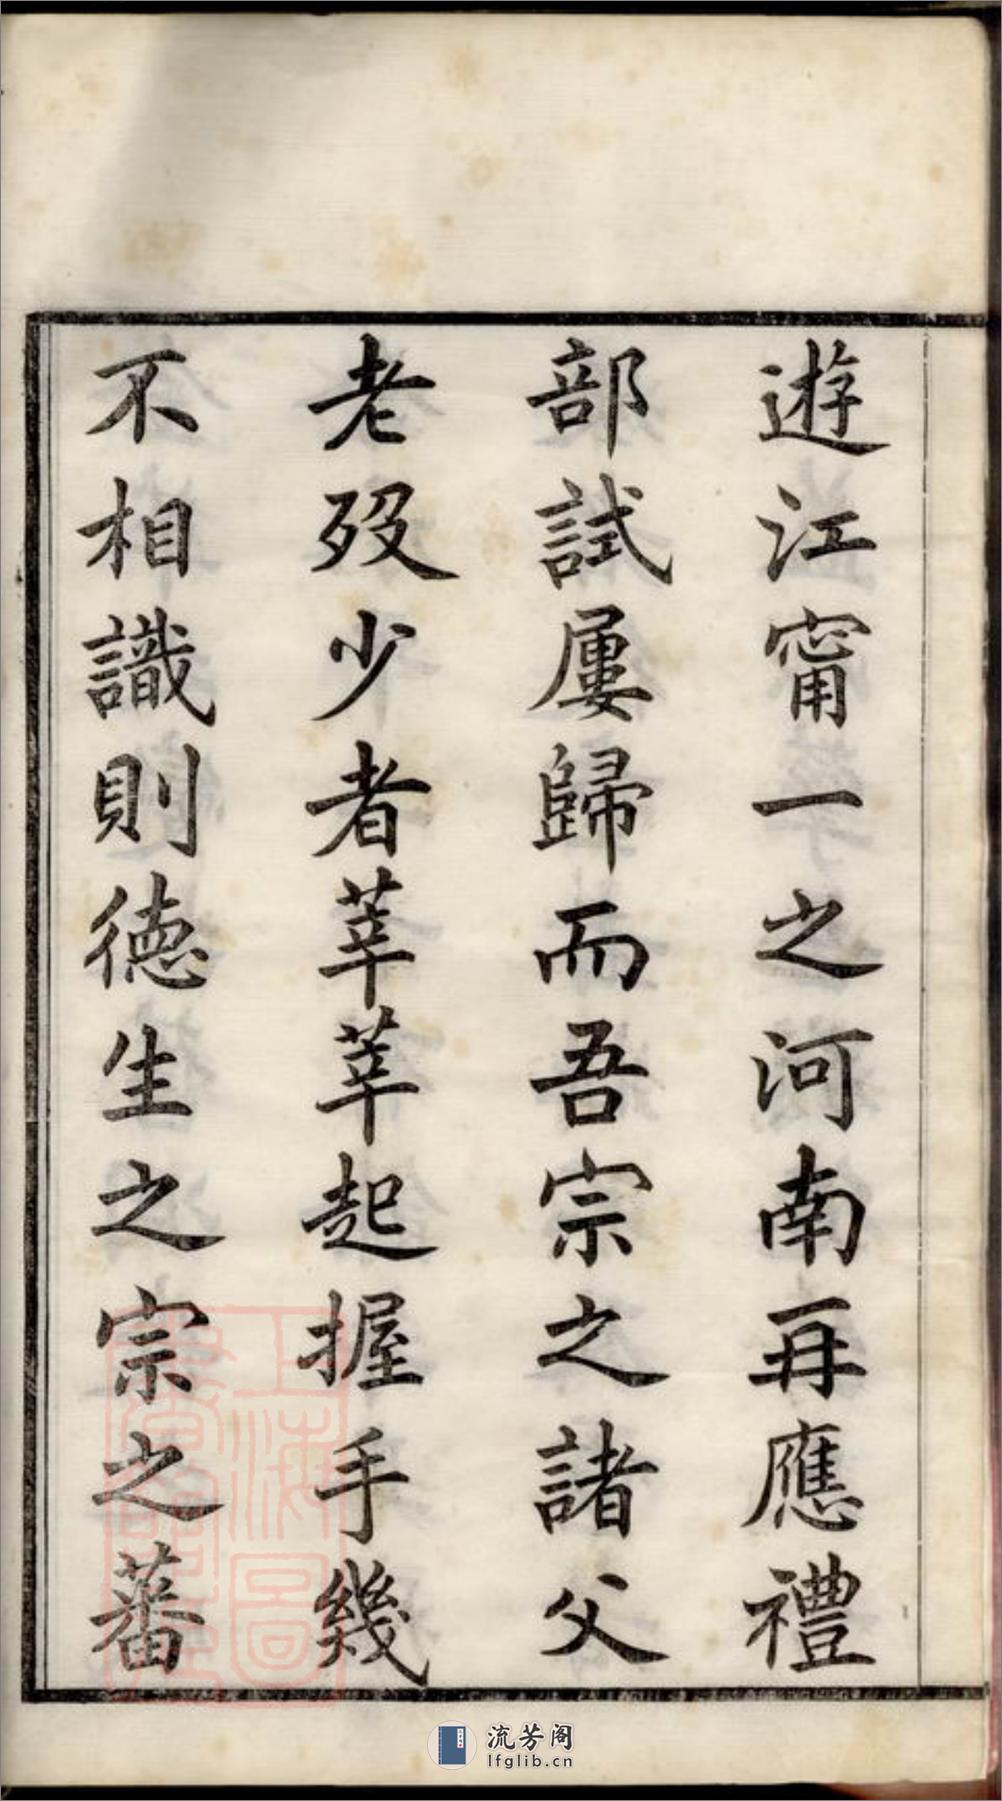 遊江甯一之河南再應禮
部試屢歸而吾宗之諸父
老歿少者莘莘起握手幾
不相識則德生之宗之蕃
上海圖
流芳阁
lfglib.cn